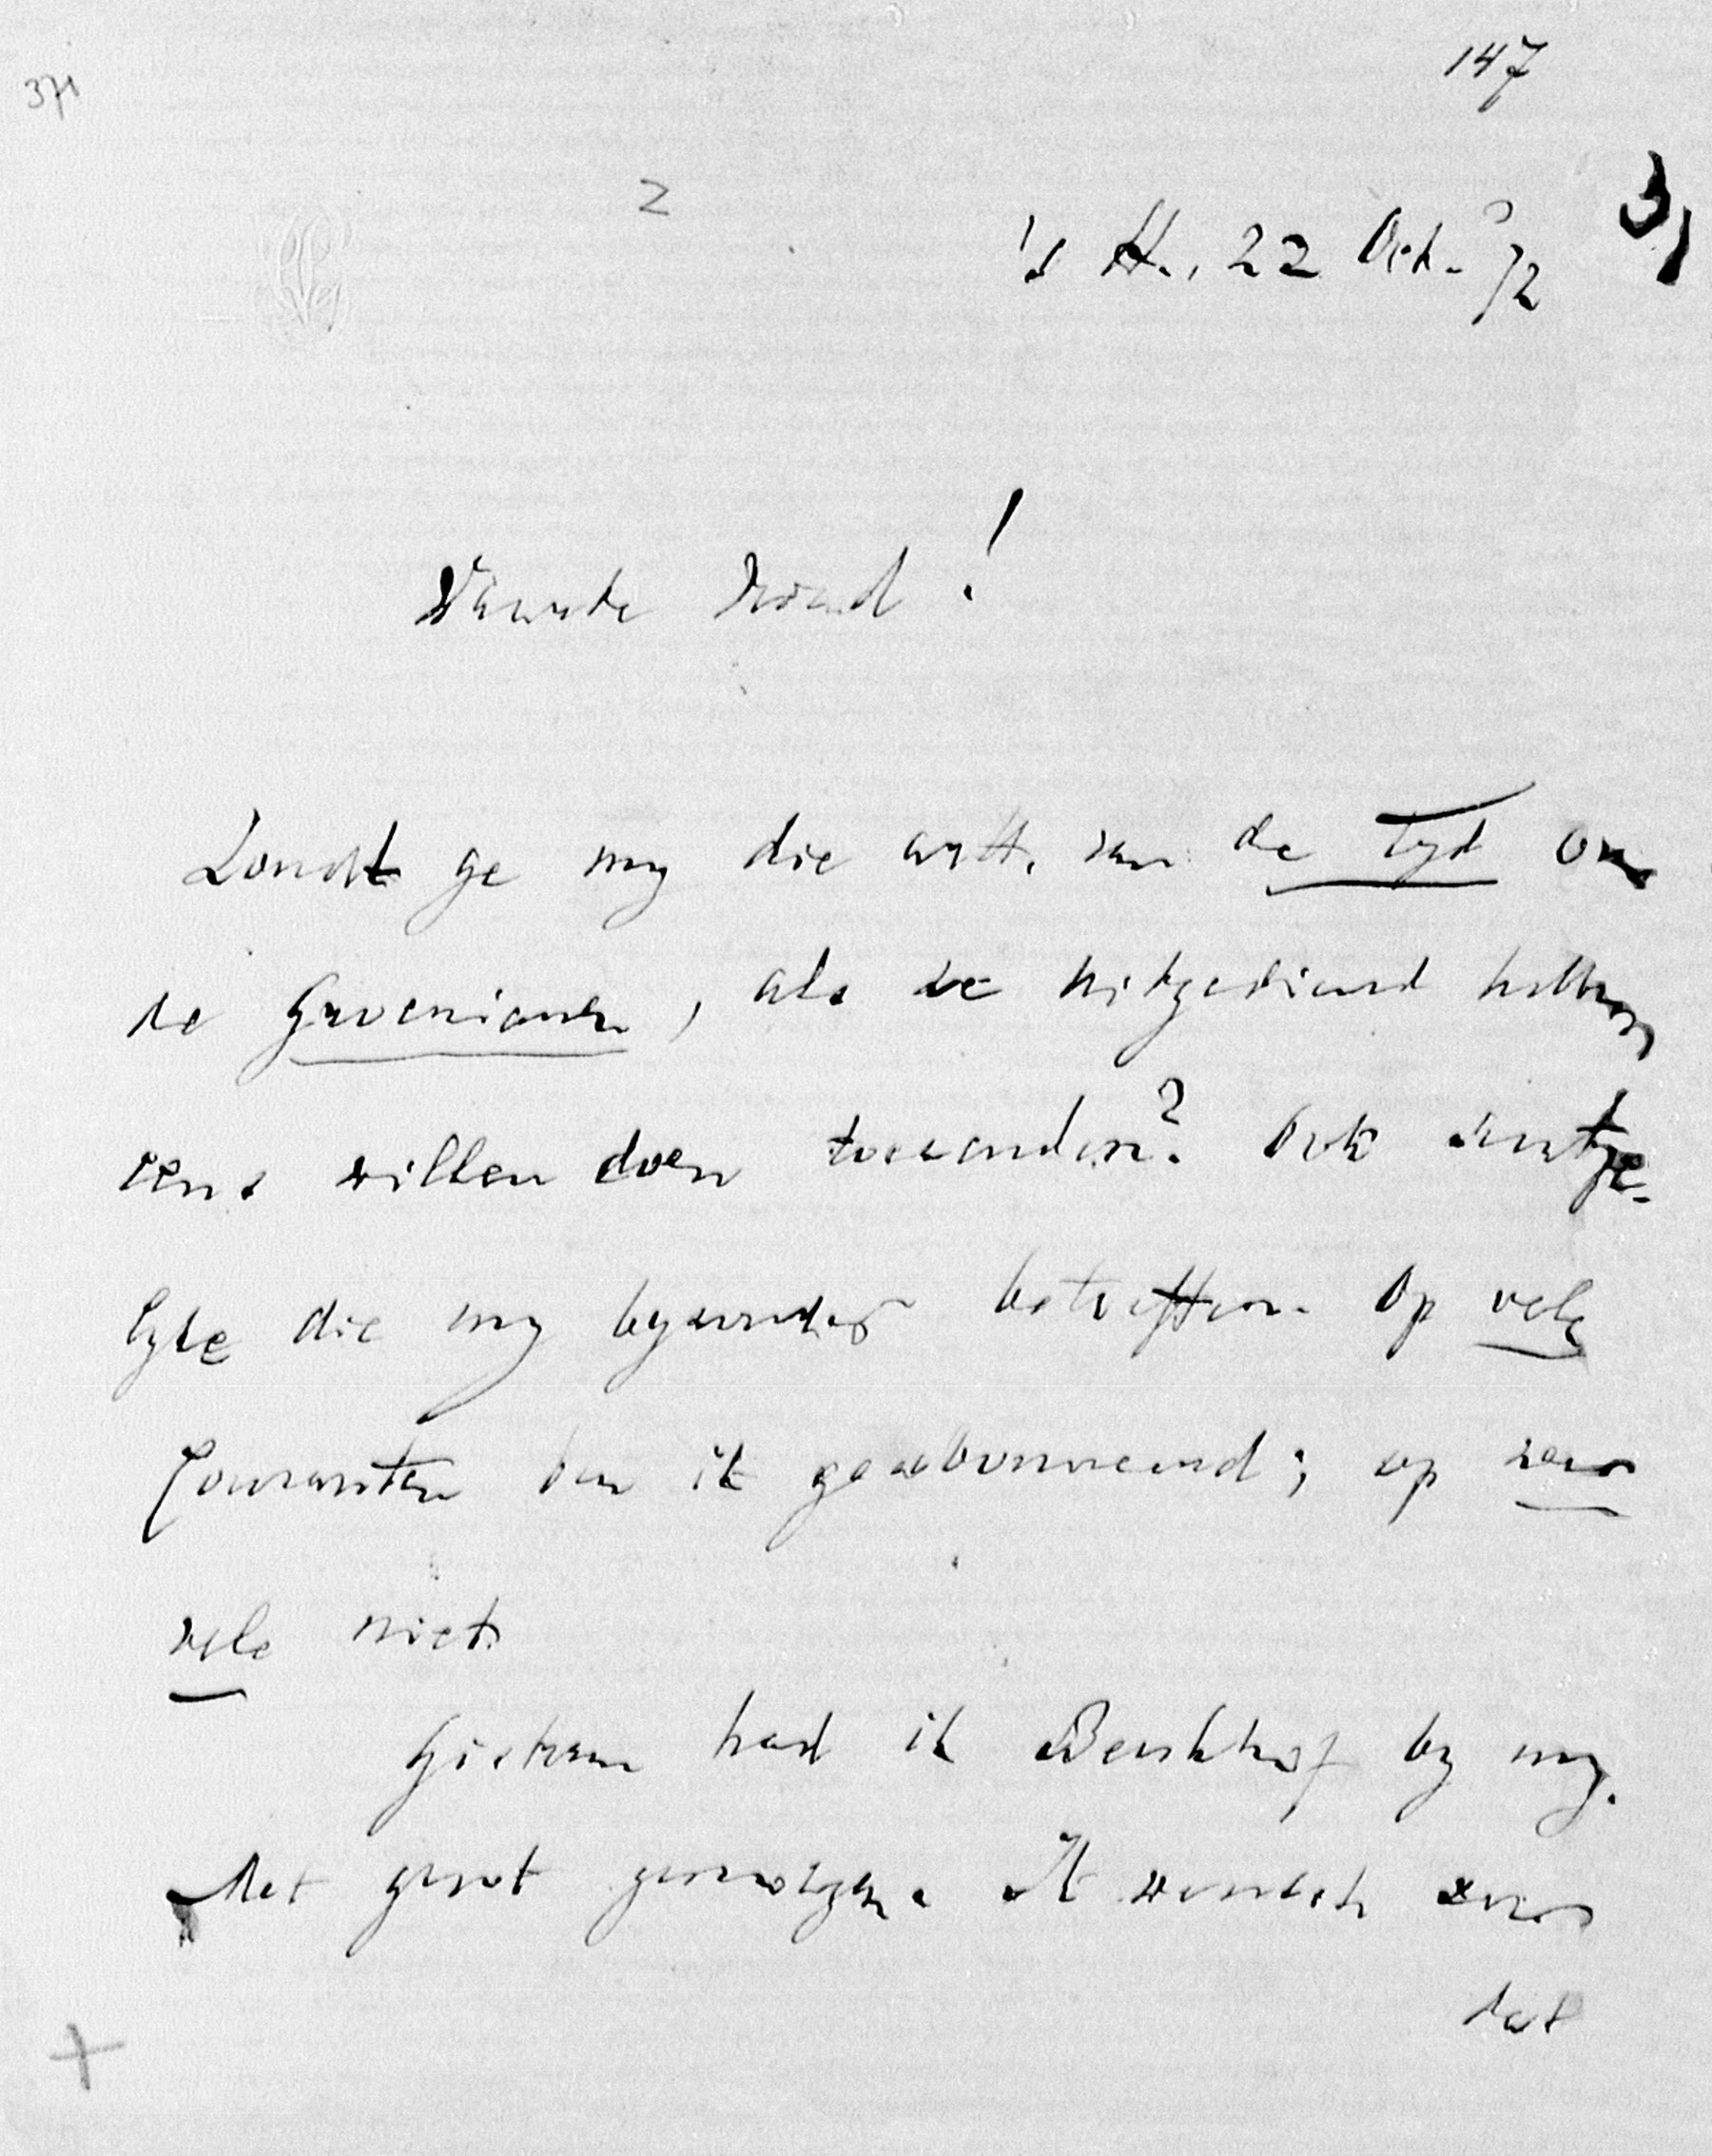 147
371
2
3,
's H., 22 Oct. 72
Waarde Vriend!
Zoudt ge my die artt. van de Tyd over
de Groenianen, als ze uitgediend hebben,
eens willen doen toezenden? Ook
die my byzonder betreffen. Op vele
Couranten ben ik geabonneerd; op zeer
vele niet.
Gisteren had ik Benkhof by my.
Met groot genoegen. Ik wensch zeer
dat